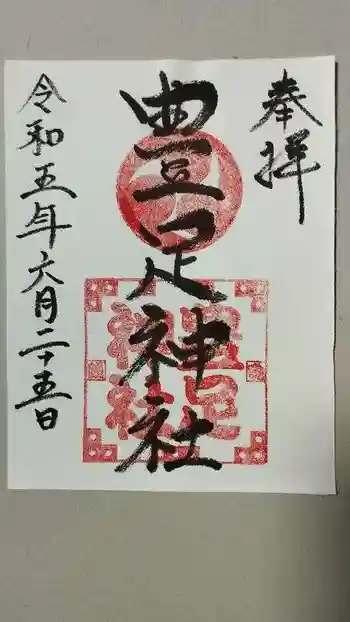 奉拝
豊足神社
豊足
神社
令和五年六月二十五日